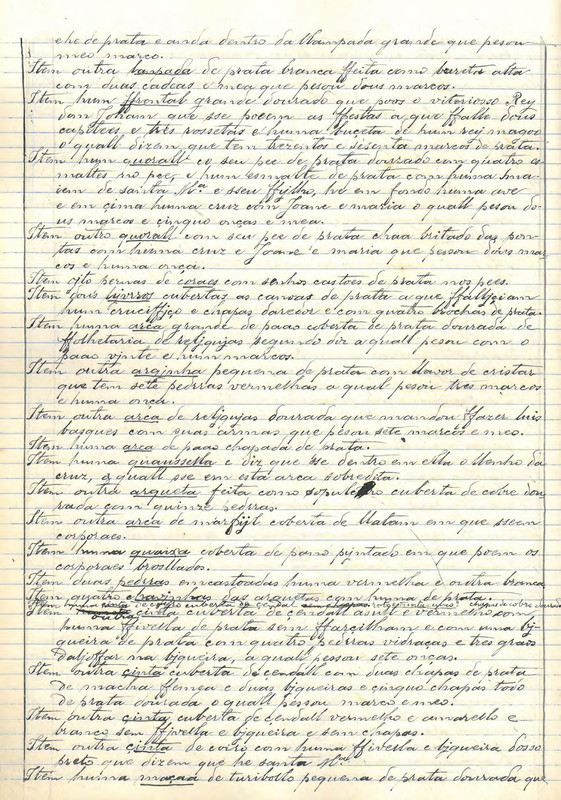 che de prata e ainda dentro da llampada grande que pesou
meo marco.
Item outra lanpada de prata branca ffeita como barita alta
com duas cadeas e mea que pesou dous marcos.
Item hum ffrontal grande dourado que poos o vitorioso Rey
dom Joham que sse poem as ffestas a que ffalto dous
capitees, e três rossetas e huma buceta de hum rej magoo
o quall dizem, que tem trezentos e sesenta marcos de prata.
Item hum quorall co seu pee de prata dourado com quatro es-
maltes no pee, e hum esmalte de prata com huma Ima-
iem de santa Mª e sseu ffilho, ho em fondo huma ave
e em çima huma cruz com Joane e maria o quall pesou do-
us marcos e çinquo onças e mea.
Item outro quorall com seu pee de prata chaa britado das pon-
tas com huma cruz e Joane e maria que pesou dous mar-
cos e huma onça.
Item ojto pernas de coraes com senhos castões de prata nos pees.
Item dous livrros cubertas as canoas de prata a que ffalleçiam
hum cruciffiço e chapas daredor e com quatro brochas de prata.
Item huma arca grande de paao coberta de prata dourada de
ffolhetaria de relijqujas segundo diz a quall pesou com o
paao vinte e hum marcos.
Item outra arqinha pequena de prata com llavor de cristas
que tem sete pedrras vermelhas a quall pesou tres marcos
e huma onça.
Item outra arca de relijqujas dourada que mandou ffazer luis
basques com suas armas que pesou sete marcos e meo.
Item huma arca de paao chapada de prata.
Item huma quaussella e diz que sse dentro em ella o llenho da
cruz, a quall sse em esta arca sobredita.
Item outra arqueta feita como sopulcro cuberta de cobre dou-
rada com quinze pedrras.
Item outra arca de marfijl coberta de llatam em que sseem
corporaes.
Item huma quaixa coberta de pano pijntado em que poem os
corporaes broslados.
Item duas pedrras emcastoadas huma vermelha e outra branca
Item quatro chavinhas das arquetas com huma de prata.
Item outra cinta cuberta de cendall azull e vermelho com
huma ffivella de prata sem ffarçilham e com uma bj-
queira de prata com quatro pedrras vidraças e tres grãos
daljoffar na bjqueira, a quall pesou sete onças.
Item outra çinta cuberta de cendall com duas chapas de prata
de macha femea e duas bjqueiras e çinquo chapas todo
de prata dourada o quall pesou marco e meo.
Item outra çinta cuberta de cendall vermelho e amarello e
branco sem ffivella e bjqueira e sem chapas.
Item outra çinta de coiro com huma ffivella e bjqueira dosso
preto que dizem que he santa
Item huma maçaa de turibollo pequena de prata dourrada que